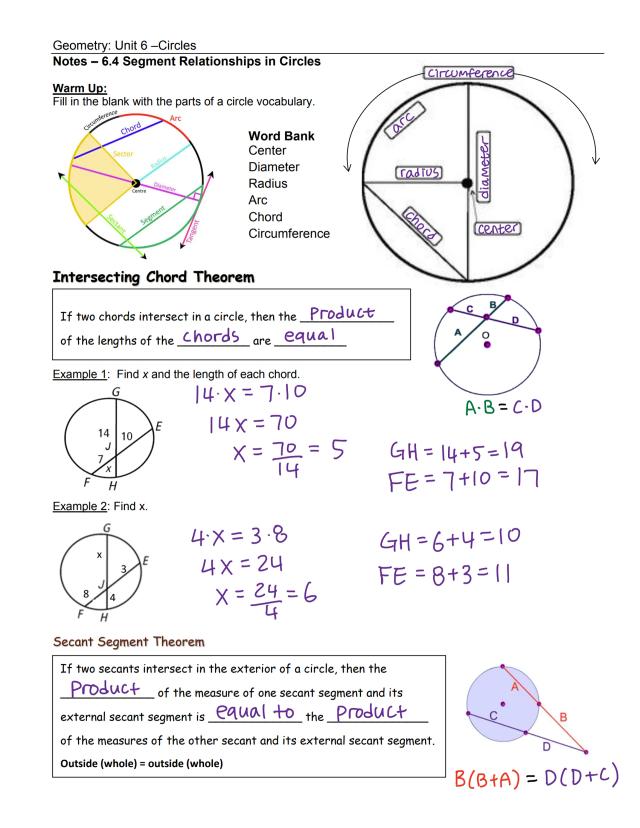 Geometry: Unit 6 –Circles
Notes – 6.4 Segment Relationships in Circles
Warm Up:
Fill in the blank with the parts of a circle vocabulary.
Circumference
Chord
Arc
Sector
Radius
Centre
Diameter
Segment
Sectant
Tangent
Word Bank
Center
Diameter
Radius
Arc
Chord
Circumference
circumference
arc
radius
diameter
chord
center
Intersecting Chord Theorem
If two chords intersect in a circle, then the Product
of the lengths of the chords are equal
C B
A D
O
A·B = C·D
Example 1: Find x and the length of each chord.
G
E
14 10
J
7
x
F H
14·x = 7·10
14x = 70
x = 70/14 = 5
GH = 14+5 = 19
FE = 7+10 = 17
Example 2: Find x.
G
x
E
3
J
8 4
F H
4·x = 3·8
4x = 24
x = 24/4 = 6
GH = 6+4 = 10
FE = 8+3 = 11
Secant Segment Theorem
If two secants intersect in the exterior of a circle, then the
Product of the measure of one secant segment and its
external secant segment is equal to the product
of the measures of the other secant and its external secant segment.
Outside (whole) = outside (whole)
A
B
C
D
B(B+A) = D(D+C)